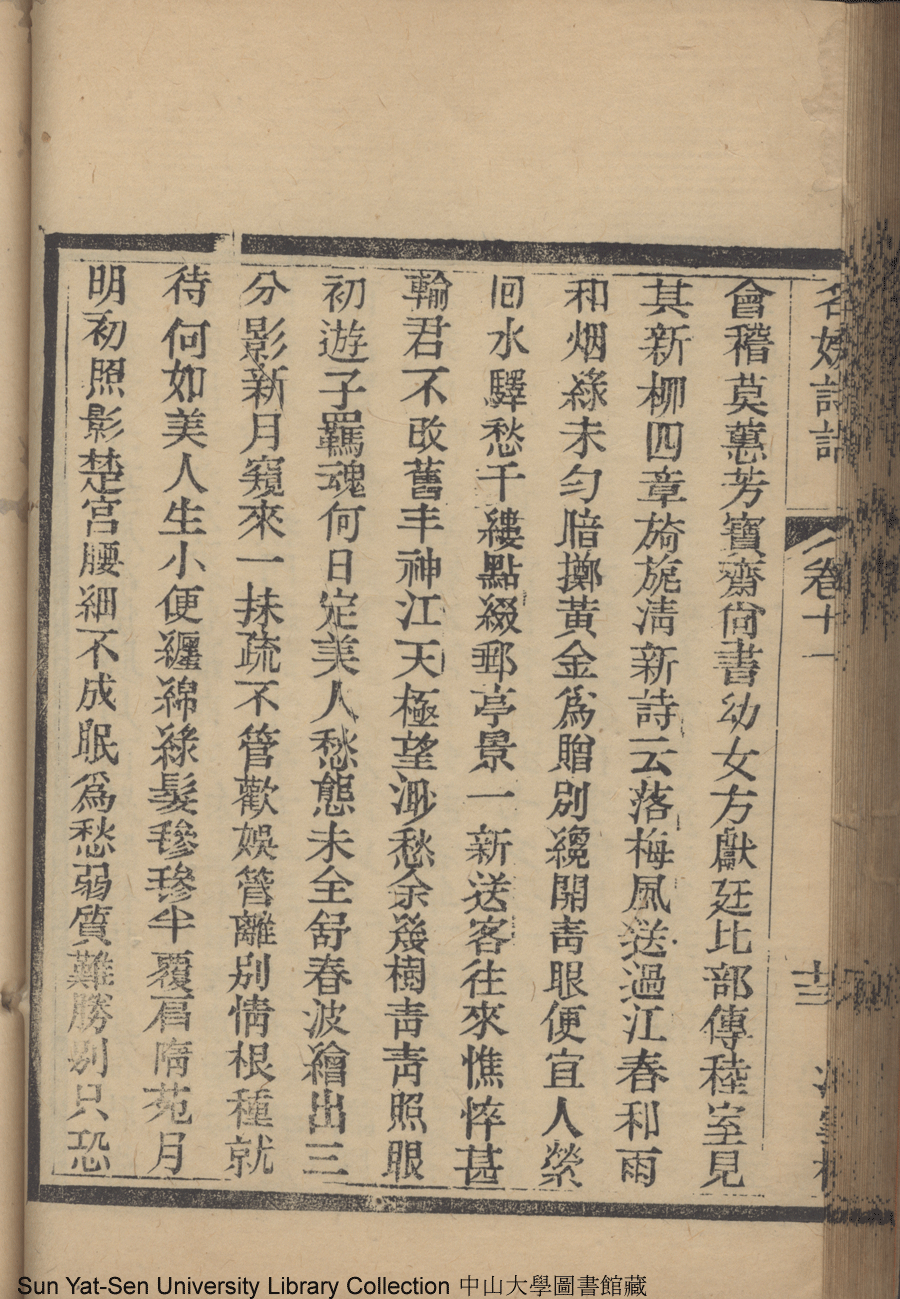 名媛詩話
卷十一
會稽莫蕙芳寶齋尙書幼女方獻廷比部傳穜室見
其新柳四章旖旎淸新詩云落梅風送過江春和雨
和烟綠未勻脂擲黃金爲贈別纔開靑眼便宜人縈
回水驛愁千縷點綴郵亭景一新送客往來憔悴甚
輸君不改舊丰神江天極望渺愁余幾樹靑靑照眼
初遊子羈魂何日定美人愁態未全舒春波繪出三
分影新月窺來一抹疏不管歡娛管離別情根種就
待何如美人生小便纏綿綠髮毿毿半覆眉隋苑月
明初照影楚宮腰細不成眠爲愁弱質難勝別只恐
Sun Yat-Sen University Library Collection 中山大學圖書館藏